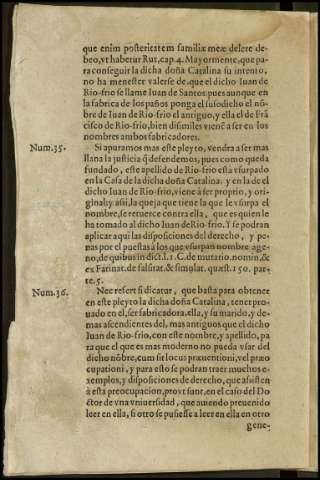 que enim posteritatem familiæ meæ delere de-
beo, vt habetur Rut, cap. 4. Mayormente, que pa-
ra conseguir la dicha doña Catalina su intento,
no ha menester valerse de que el dicho Iuan de
Rio-frio se llame Iuan de Santos: pues aunque en
la fabrica de los paños ponga el susodicho el nõ-
bre de Iuan de Rio-frio el antiguo, y ella el de Frã
cisco de Rio-frio, bien dissimiles viene a ser en los
nombres ambos fabricadores.
Num. 35. Si apuramos mas este pleyto, vendra a ser mas
llana la justicia q̃ defendemos, pues como queda
fundado, este apellido de Rio-frio està vsurpado
en la Casa de la dicha doña Catalina: y en la de el
dicho Iuan de Rio-frio, viene à ser proprio, y ori-
ginal: y assi, la queja que tiene la que le vsurpa el
nombre, se retuerce contra ella, que es quien le
ha tomado al dicho Iuan de Rio-frio. Y se podran
aplicar aqui las disposiciones del derecho, y pe-
nas por el puestas à los que vsurpan nombre age-
no, de quibus in dict. l. 1. C. de mutatio. nomin. &
ex Farinat. de falsitat. & simulat. quæst. 150. par-
te. 5.
Num. 36. Nec refert si dicatur, que basta para obtener
en este pleyto la dicha doña Catalina, tener pro-
uado en el, ser fabricadora, ella, y su marido, y de-
mas ascendientes del, mas antiguos que el dicho
Iuan de Rio-frio, con este nombre, y apellido, pa
ra que el que es mas moderno no pueda vsar del
dicho nõbre, cum sit locus præuentioni, vel præo
cupationi, y para esto se podran traer muchos e-
xemplos, y disposiciones de derecho, que assisten
à esta preocupacion, pro vt sunt, en el caso del Do
ctor de vna vniuersidad, que auiendo preuenido
leer en ella, si otro se pusiesse a leer en ella en otro
gene-